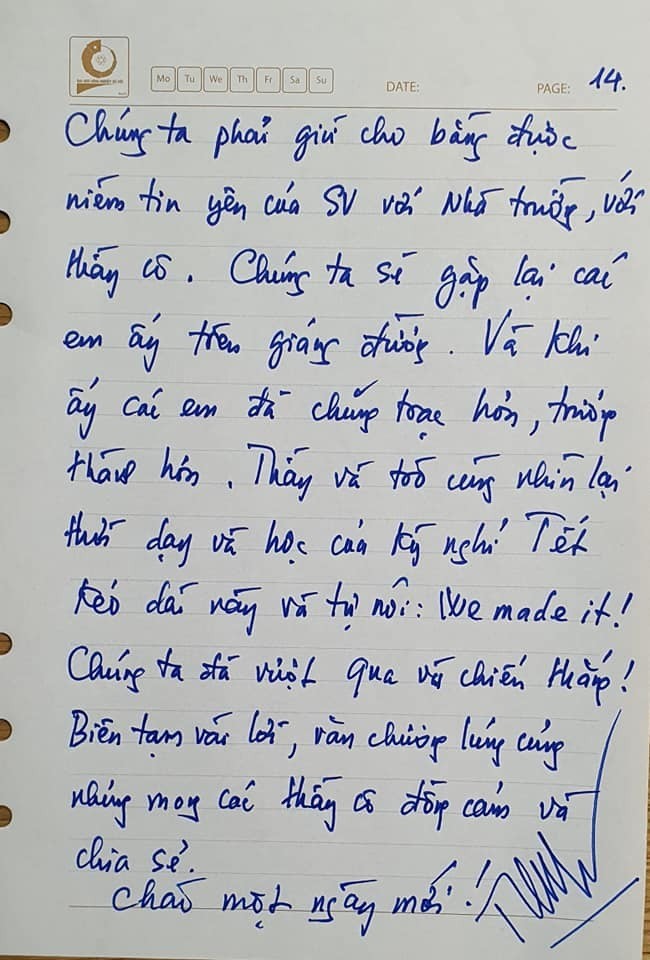 ĐẠI HỌC CÔNG NGHIỆP HÀ NỘI
Mo Tu We Th Fr Sa Su
DATE: PAGE: 14.
Chúng ta phải giữ cho bằng được
niềm tin yêu của SV với Nhà trường, với
thầy cô. Chúng ta sẽ gặp lại các
em ấy trên giảng đường. Và khi
ấy các em đã chững chạc hơn, trưởng
thành hơn. Thầy và trò cùng nhìn lại
thời dạy và học của kỳ nghỉ Tết
kéo dài này và tự nói: We made it!
Chúng ta đã vượt qua và chiến thắng!
Biên tạm vài lời, văn chương lủng củng
nhưng mong các thầy cô đồng cảm và
chia sẻ.
Chào một ngày mới!